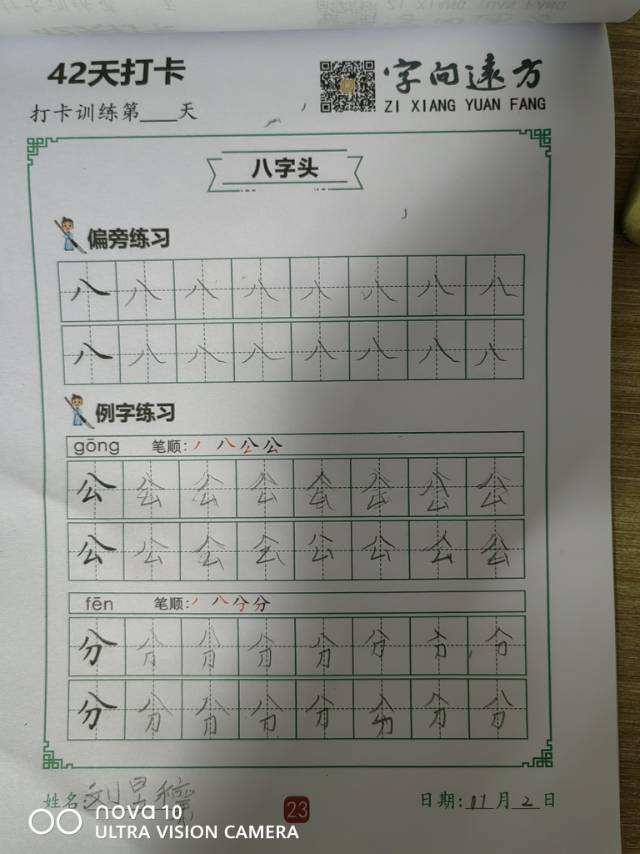 42天打卡
打卡训练第___天
字向遠方
ZI XIANG YUAN FANG
八字头
偏旁练习
八 八 八 八 八 八 八 八
八 八 八 八 八 八 八 八
例字练习
gōng 笔顺: 丿 八 公 公
公 公 公 公 公 公 公 公
公 公 公 公 公 公 公 公
fēn 笔顺: 丿 八 分 分
分 分 分 分 分 分 分 分
分 分 分 分 分 分 分 分
姓名: 刘昱
23
日期: 11 月 2 日
nova 10
ULTRA VISION CAMERA